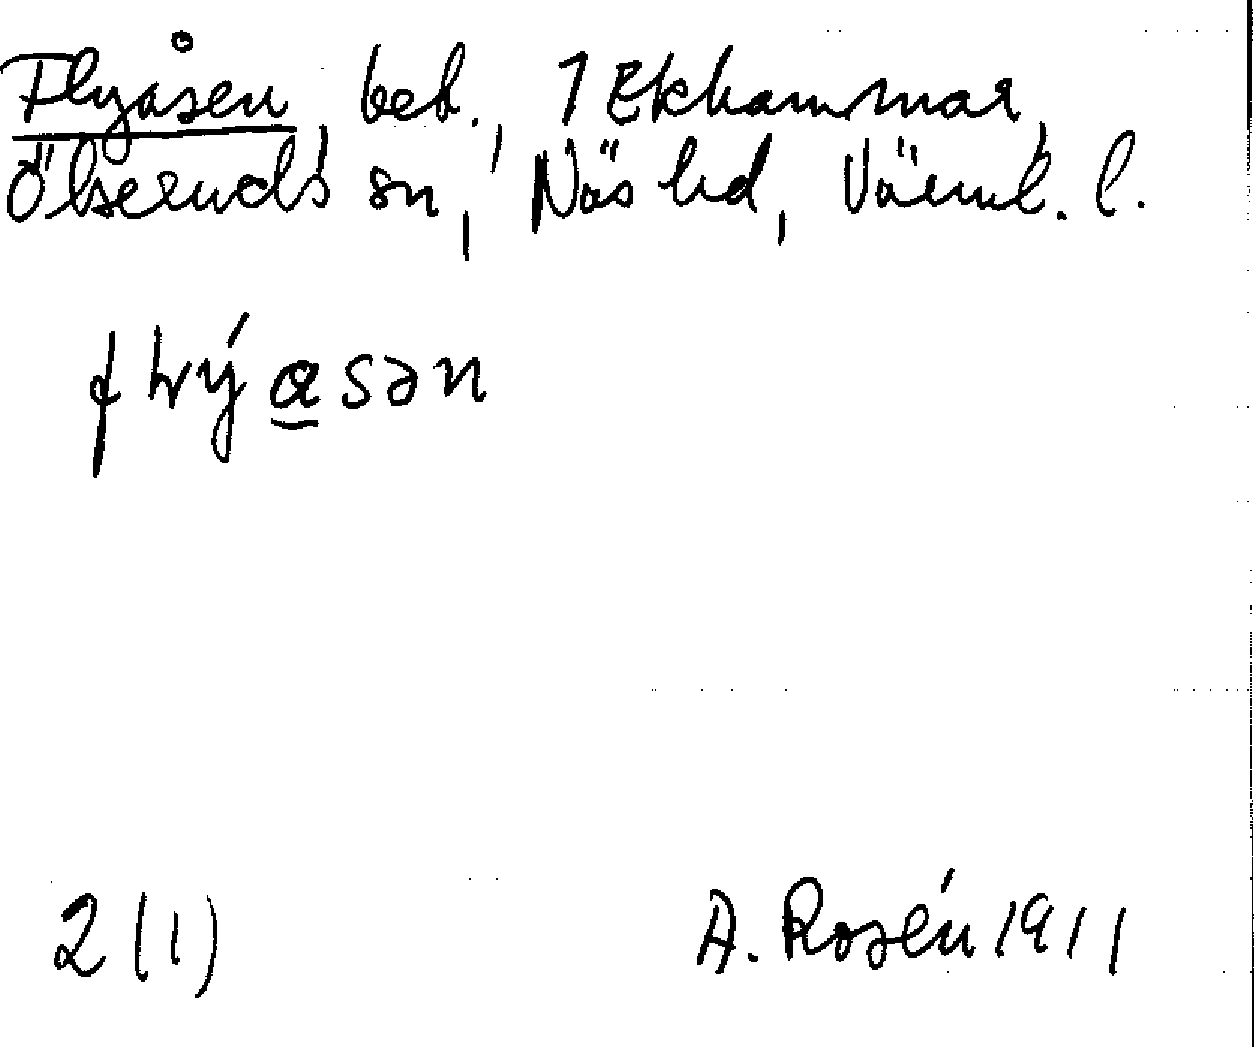 Flyåsen, beb., 1 Ekhammar,
Ölseruds sn, Näs hd, Värml. l.
2 (1)
A. Rosén 1911